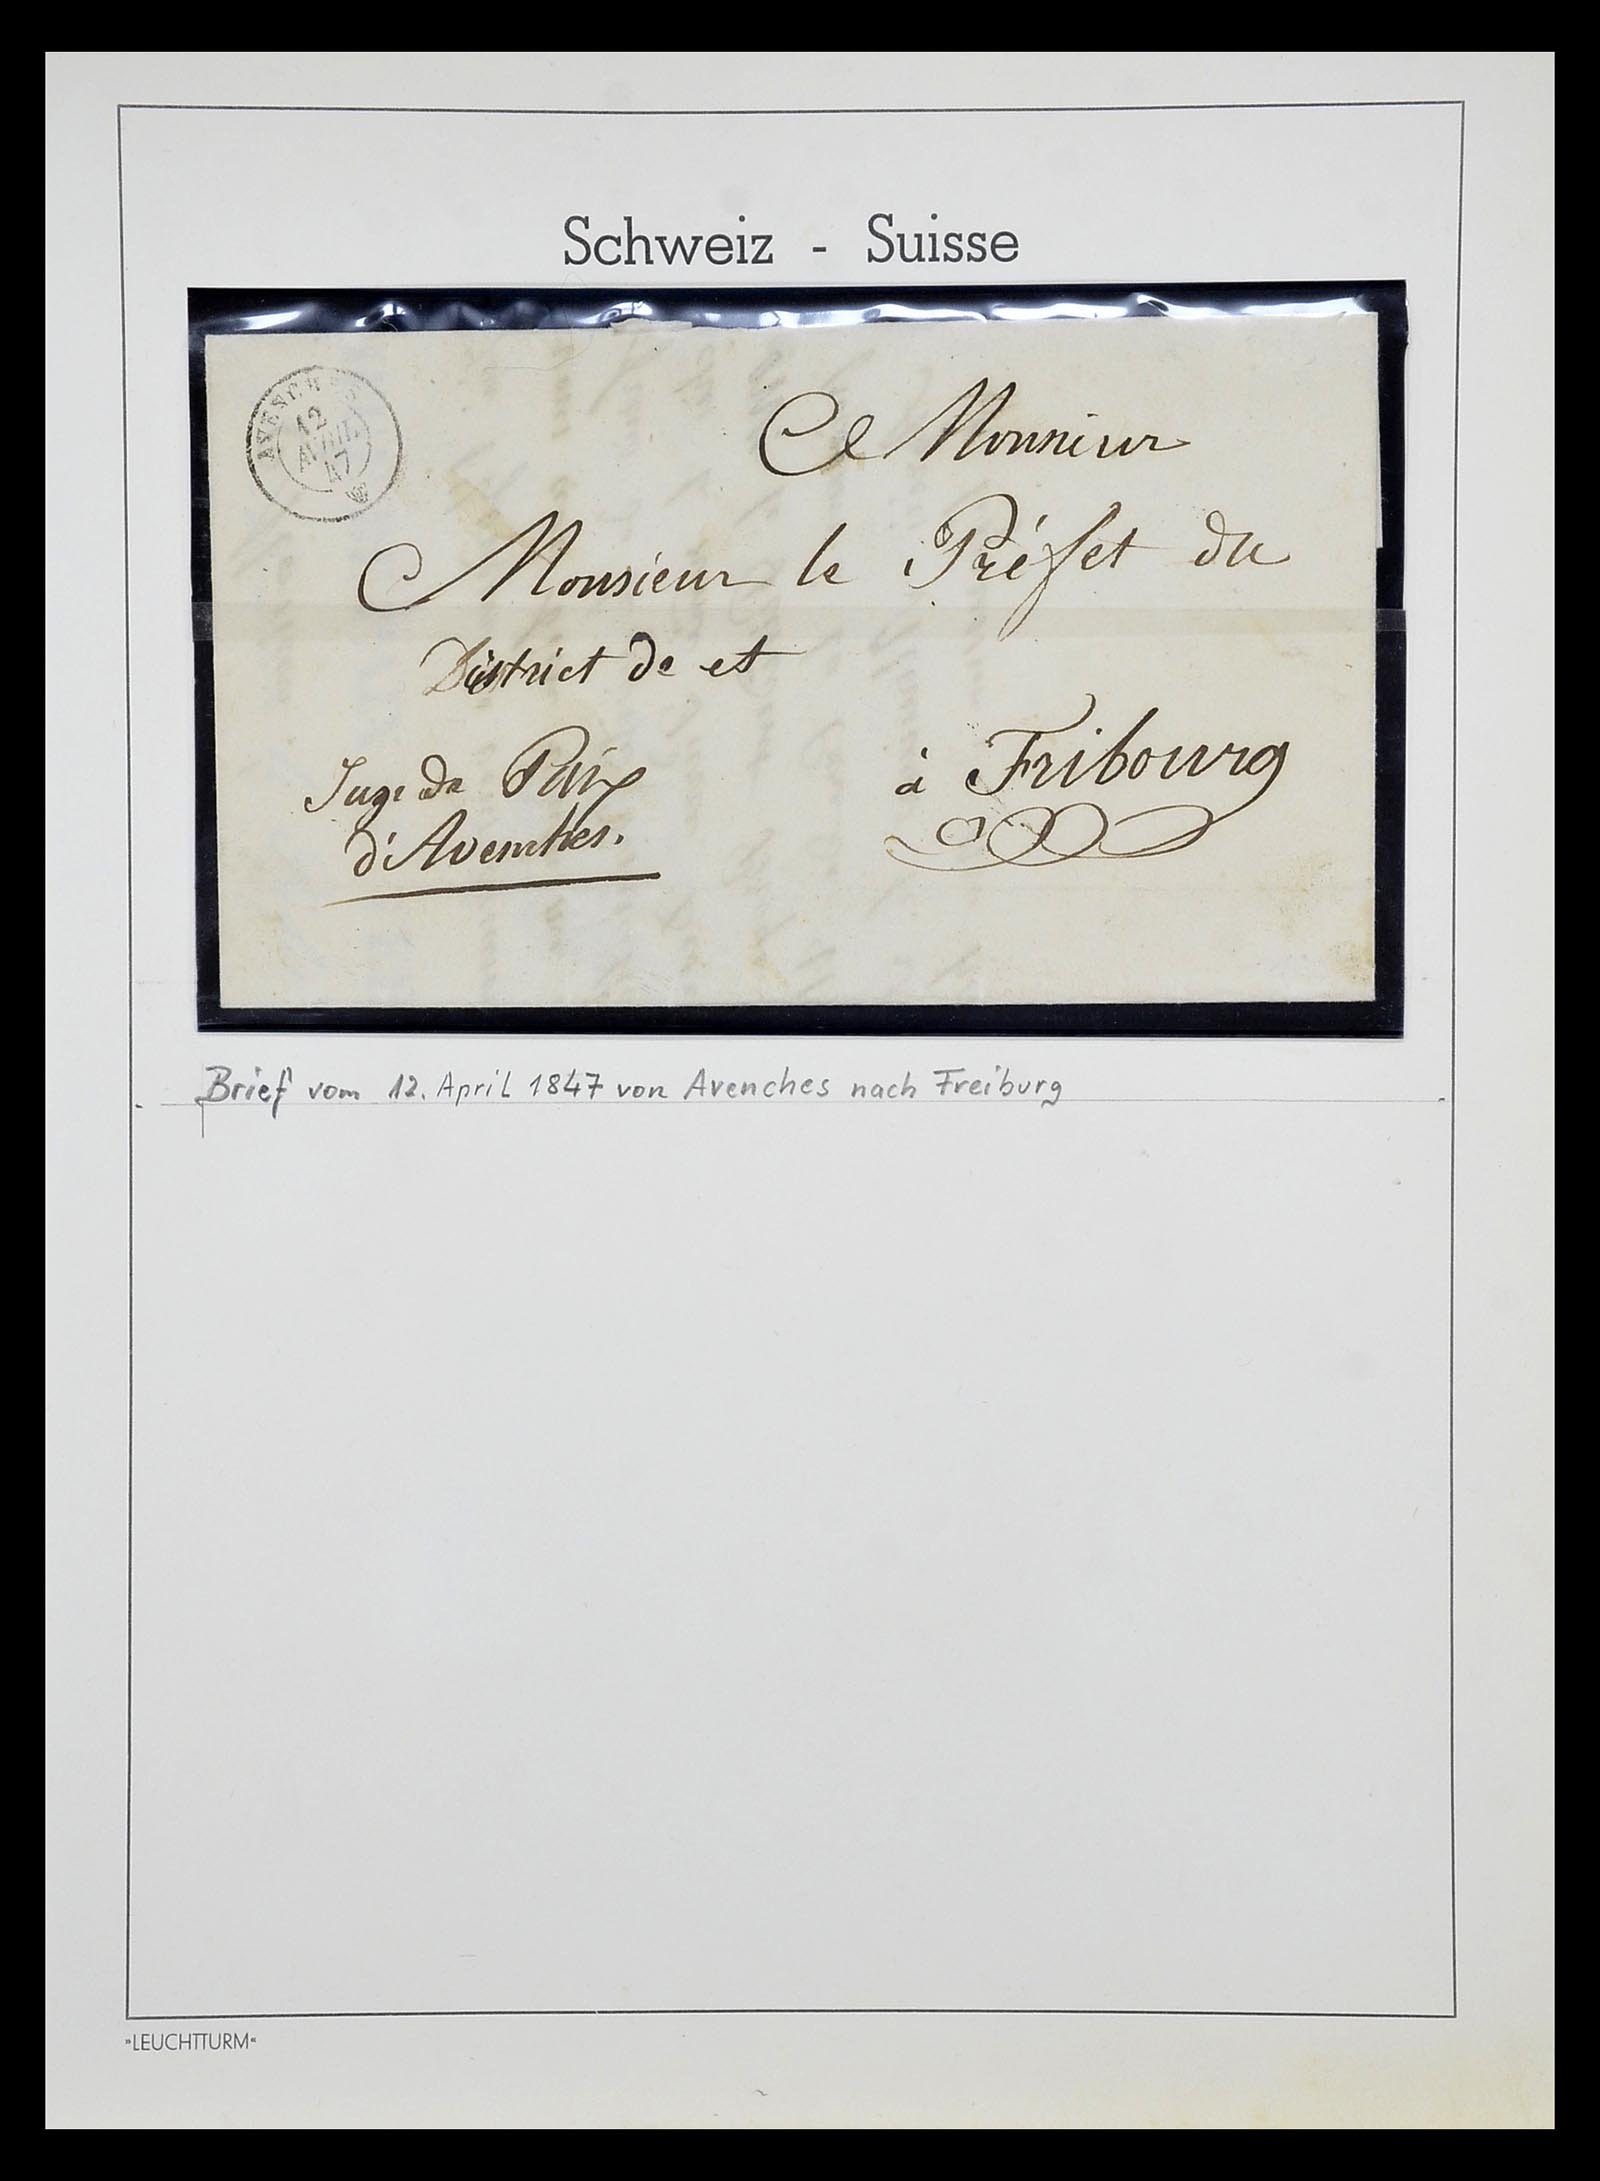 Schweiz - Suisse
AVENCHES
12
AVRIL
47
A Monsieur
Monsieur le Préfet du
District de et
à Fribourg
Juge de Paix
d'Avenches.
Brief vom 12. April 1847 von Avenches nach Freiburg
»LEUCHTTURM«